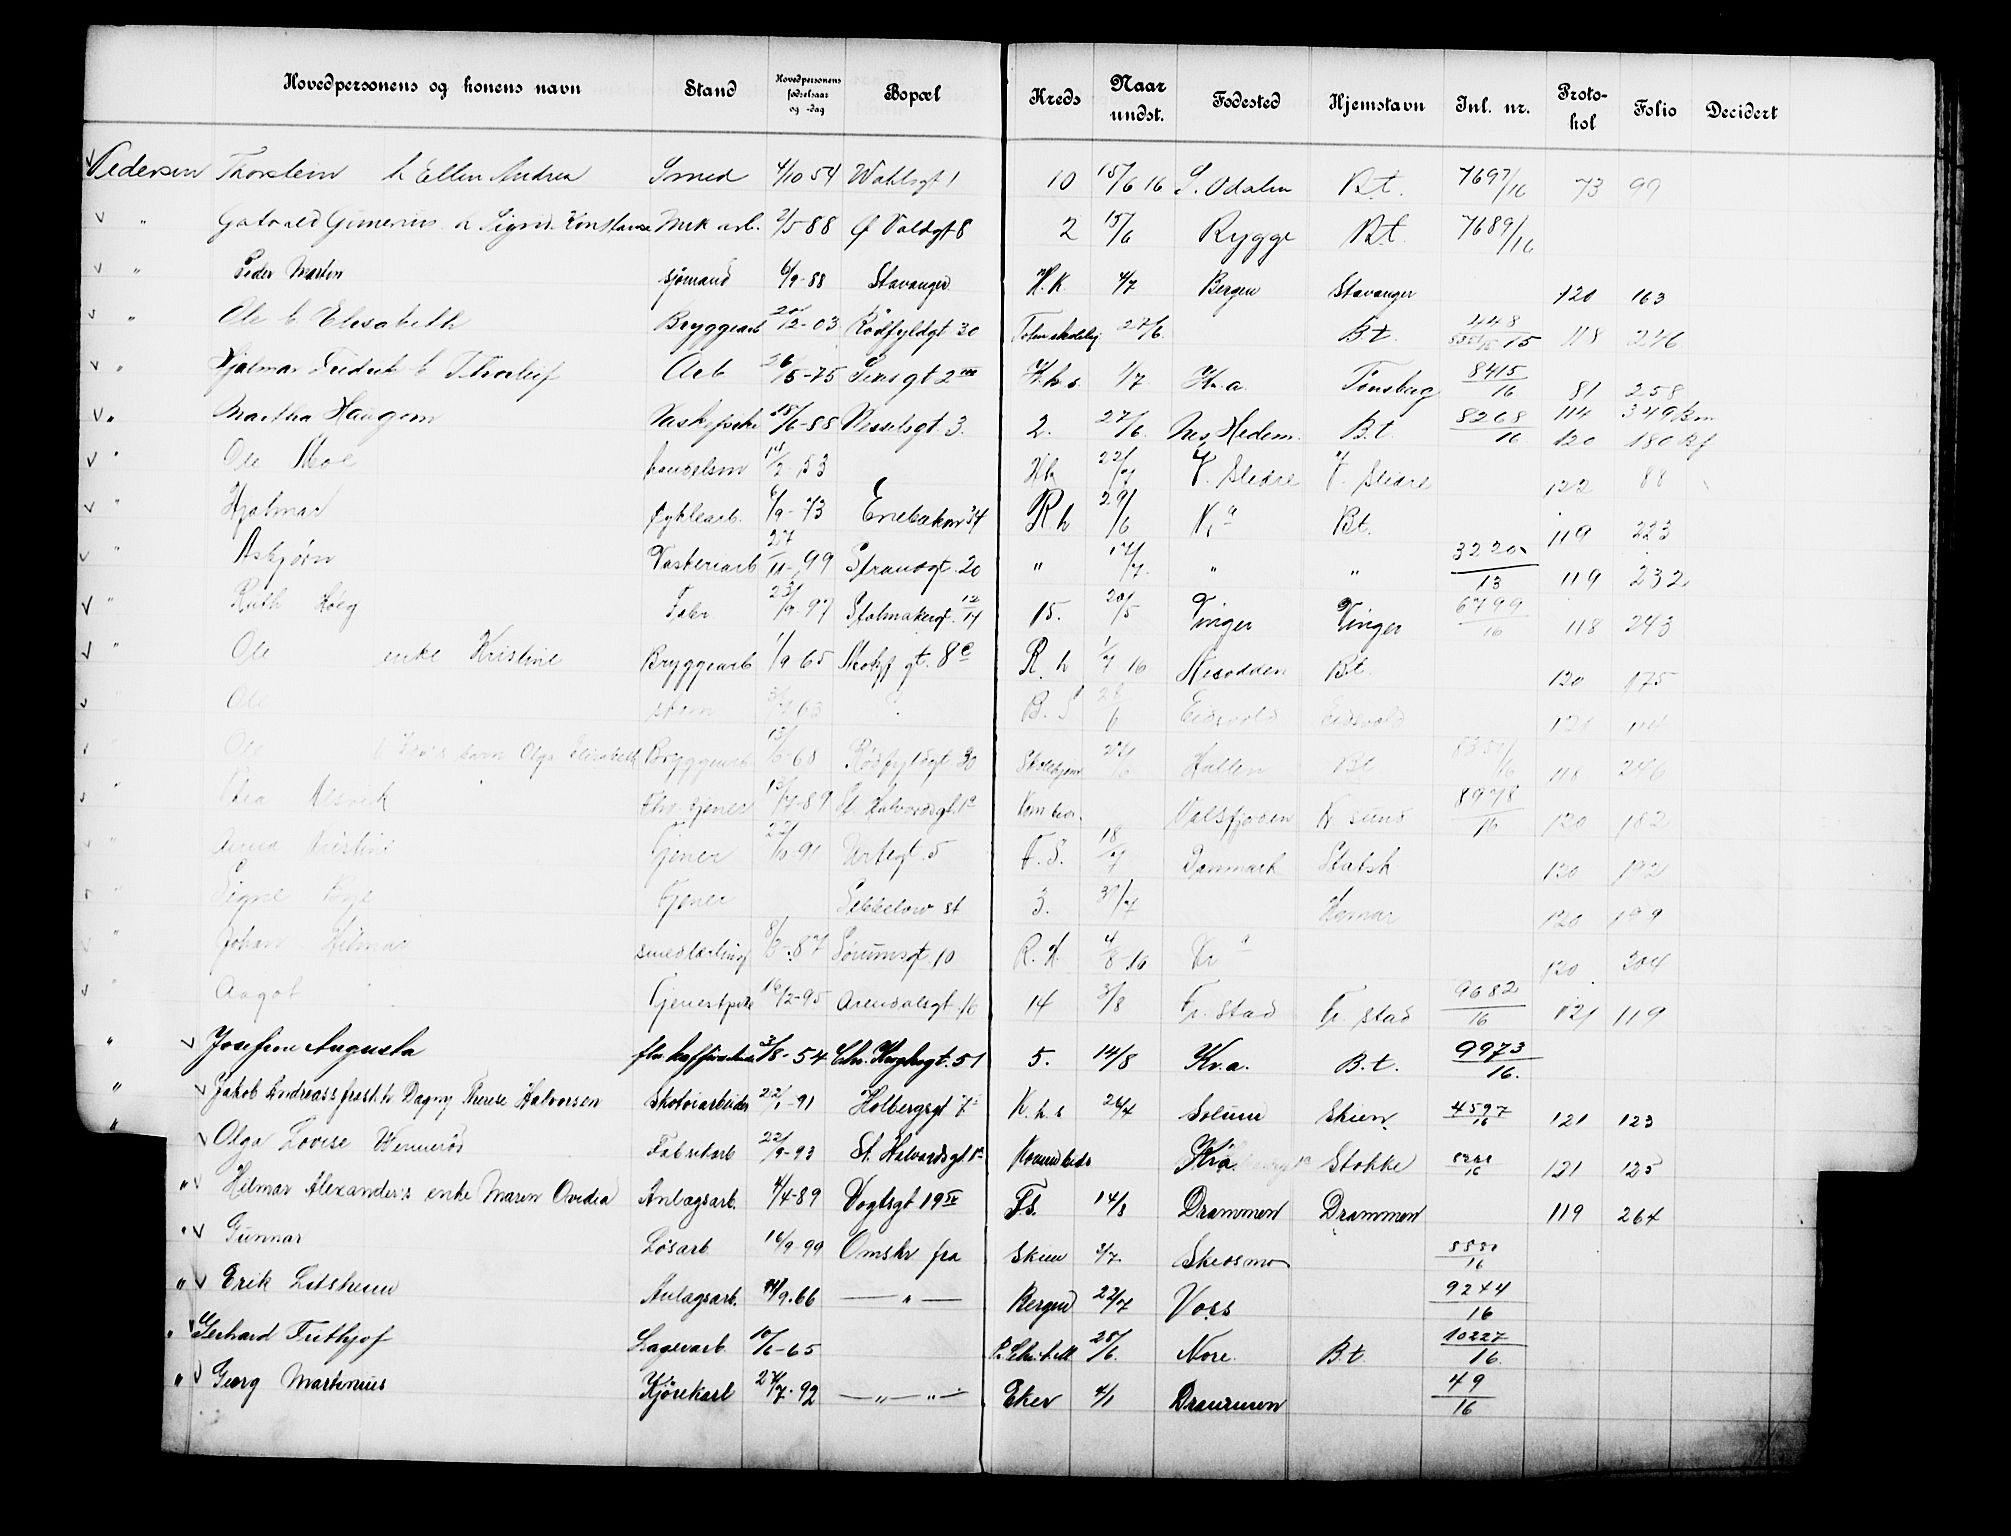 Hovedpersonens og konens navn Stand Hovedpersonens fødselsaar og -dag Bopæl Kreds Naar undst. Fødested Hjemstavn Inl. nr. Protokol Folio Decidert
Pedersen Thorstein h Ellen Andrea Smed 4/10 54 Wahlsgt 1 10 15/6 16 S. Odalen Bt. 7697/16 73 99
" Gunerius h Sigrid Konstanse Mek arb. 2/5 88 Ø Voldgt 8 2 15/6 Rygge Bt. 7689/16
" Peder Martin sjømand 6/9-88 Stavanger H.K. 4/7 Bergen Stavanger 120 163
" Ole h Elisabeth Bryggearb /12-03 Rødfyldgt 30 27/6. Bt. 15 118 246
" Hjalmar Fredrik h Thorleif Arb 26/5-75 Jensgt 2 K.h.s 1/7. Kr.a Tønsberg 8415/16 81 258
" Martha Haugom Vaskepike 18/6-88 Wesselsgt. 3. 2. 27/6. Nes Hedem. Bt. 8268/16. 114 349 120 180
" Ole Moe handelsm 14/2-53 Hk 22/7 V. Slidre V. Slidre 122 88
" Hjalmar cyklearb. 6/9-73 Enebakkv 34 R h 29/6 Kr a Bt. 119 223
" Asbjørn Vaskeriarb 27/11-99 Strandgt. 20 " 17/7. " " 3220/13 119 232
" Ruth Høeg Fabr 23/9-97 Stolmakergt. 12/14 15. 20/5 Vinger Vinger 6799/16 118 243
" Ole enke Kristine Bryggearb 1/9 65 Skolgt. 8c R. h 1/7 16 Nesodden Bt. 120 175
" Ole 63 B. S 28/6 Eidsvold Eidsvold 121 114
" Ole barn Olga Elisabeth Bryggearb 15/6-68 Rødfyldgt 30 27/6 Bt 118 246
" Thea Alsvik Fhv. tjener 13/7-89 St. Halvardsgt. 1a Valsfjorden K sund 8978/16 120 182
" Anna Kristine Tjener -91 Urtegt. 5 F. S. 18/7 Danmark Statsk 120 192
" Signe Bye Tjener Sebbelow st 3. 31/7 Hamar 120 199
" Johan Hilmar smedlærling 8/3-87 Sørumsgt. 10 R. H. 4/8 16 Kr a 120 304
" Aagot Tjenestpike 16/12-95 Arendalsgt 16 14 3/8 Fr. stad Fr. stad 9682/16 121 119
" Josefine Augusta 3/8-54 Chr. Kroghsgt. 51 5. 14/8 Kr.a. B.t. 9973/16.
" Jakob Andreas s frask. h Dagny Therese Halvorsen Skotøiarbeider 22/1-91 Holbergsgt 7 K.h.s 26/4 Solum Skien 4597/16 121 123
" Olga Lovise Wennerød Fabrikarb 22/9-93 St. Halvardsgt 1a Kra Stokke /16 121 125
" Hilmar Alexander's enke Maren Ovidia Anlægsarb. 4/4-89 Vogtsgt 19 F.s. 14/8 Drammen Drammen 119 264
" Gunnar Løsarb 16/9-99 Omskr fra Skien 3/7. Skedsmo /16
" Erik Litsheim Anlægsarb. /9-66 — " — Bergen 22/7 Voss 9244/16
" Gerhard Frithjof Lagerarb 10/6-65 28/6. Nore. Bt 10227/16.
" Georg Martinius Kjørekarl 27/7-92 — " — " — Eker 4/1 Drammen 49/16